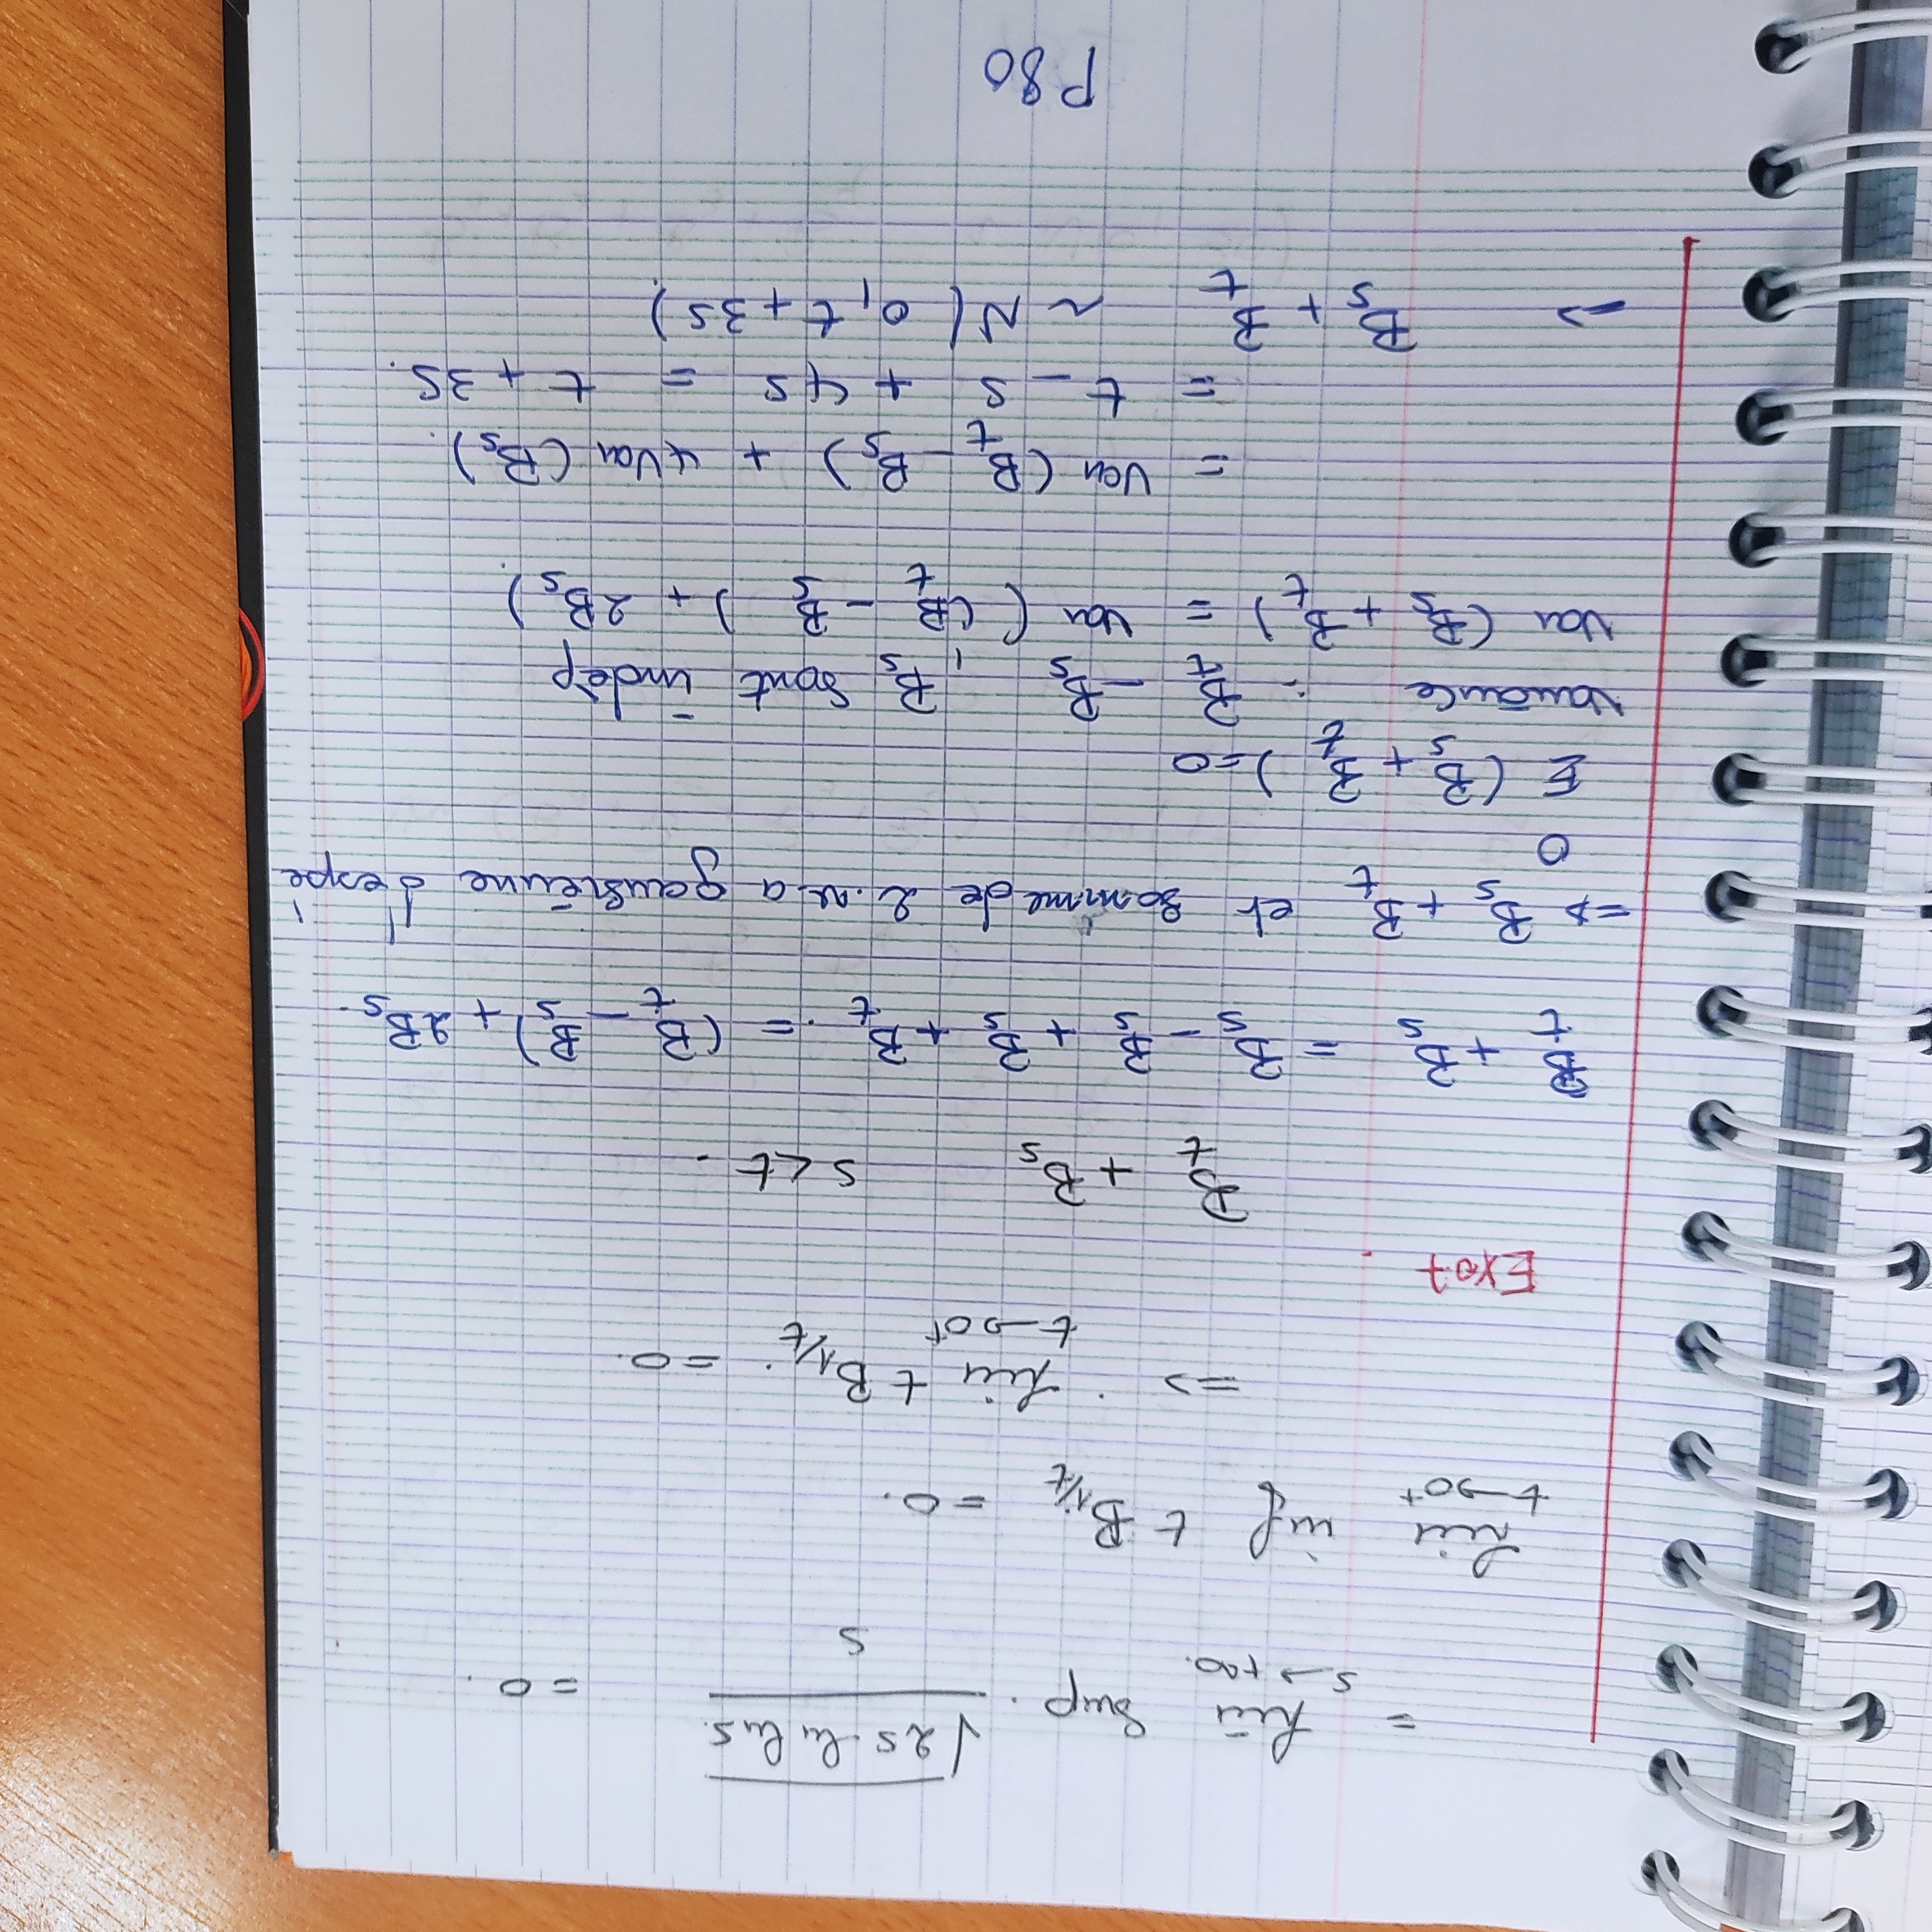 = lim sup. √(2s ln ln s.) / s = 0.
s → +∞.
lim inf t B_{1/t} = 0.
t → 0⁺
=> lim t B_{1/t}. = 0.
t → 0⁺
Exo7.
B_t + B_s s < t.
B_t + B_s = B_s - B_s + B_s + B_t. = (B_t - B_s) + 2B_s.
=> B_s + B_t et somme de 2.v.a gausiénne d'espé
0
E (B_s + B_t) = 0
Variance : B_t - B_s, B_s sont indèp
Var (B_s + B_t) = Var ((B_t - B_s) + 2B_s).
= Var (B_t - B_s) + 4Var (B_s).
= t - s + 4s = t + 3s.
=> B_s + B_t ~ N(0, t + 3s).
P80